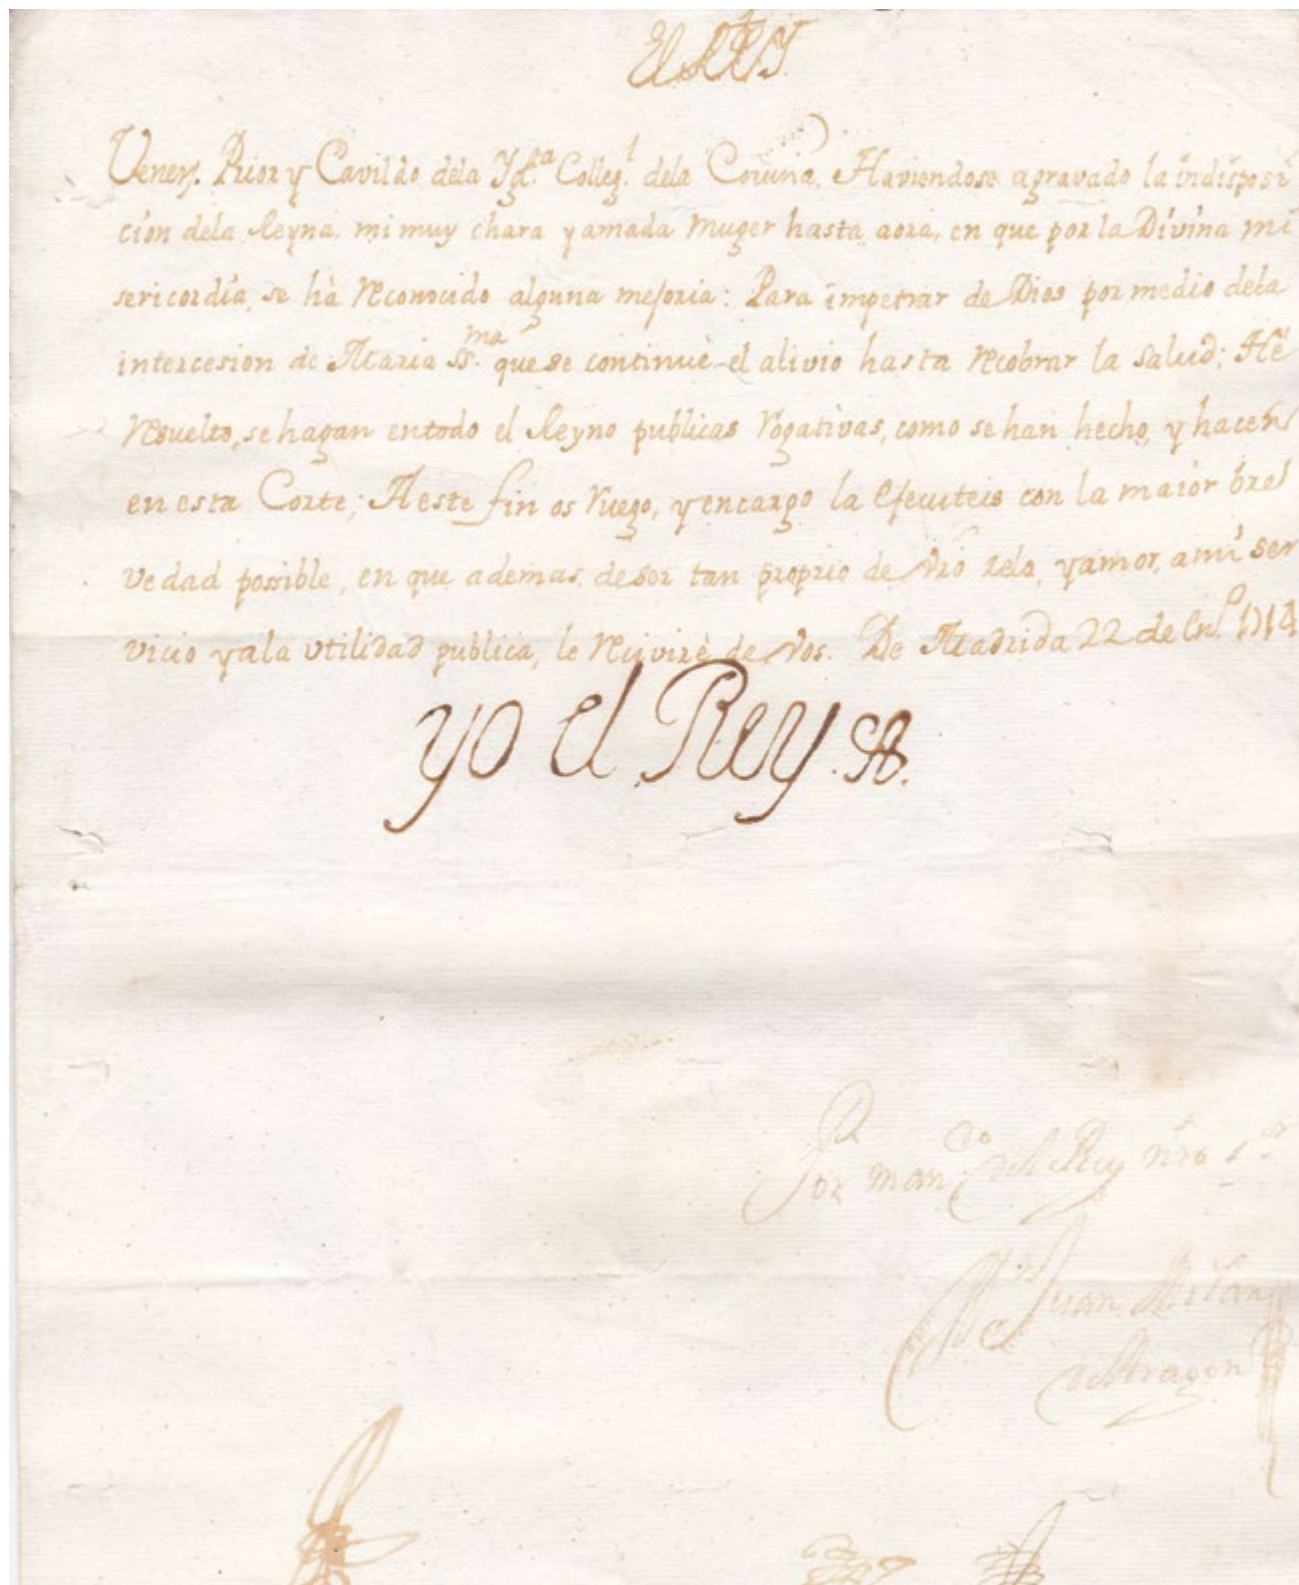 El REY
Vener. Prior y Cavildo dela Ygl.ª Colleg.l dela Coruña. Haviendose agravado la indisposi
cion dela Reyna, mi muy chara y amada Muger hasta aora, en que por la Divina mi
sericordia, se hà reconocido alguna mejoria: Para impetrar de Dios por medio dela
intercesion de Maria SS.ma que se continuè el alivio hasta recobrar la salud; Hè
resuelto, se hagan entodo el Reyno publicas rogativas, como se han hecho, y hacen
en esta Corte; A este fin os ruego, y encargo la executeis con la maior bre
vedad possible, en que ademas, deser tan proprio de vrõ zelo, y amor, a mi ser
vicio y ala utilidad publica, le recivirè de vos. De Madrid a 22 de En.º 1714
yo el Rey
Por man.do del Rey nrõ S.r
Juan Milan
de Aragon